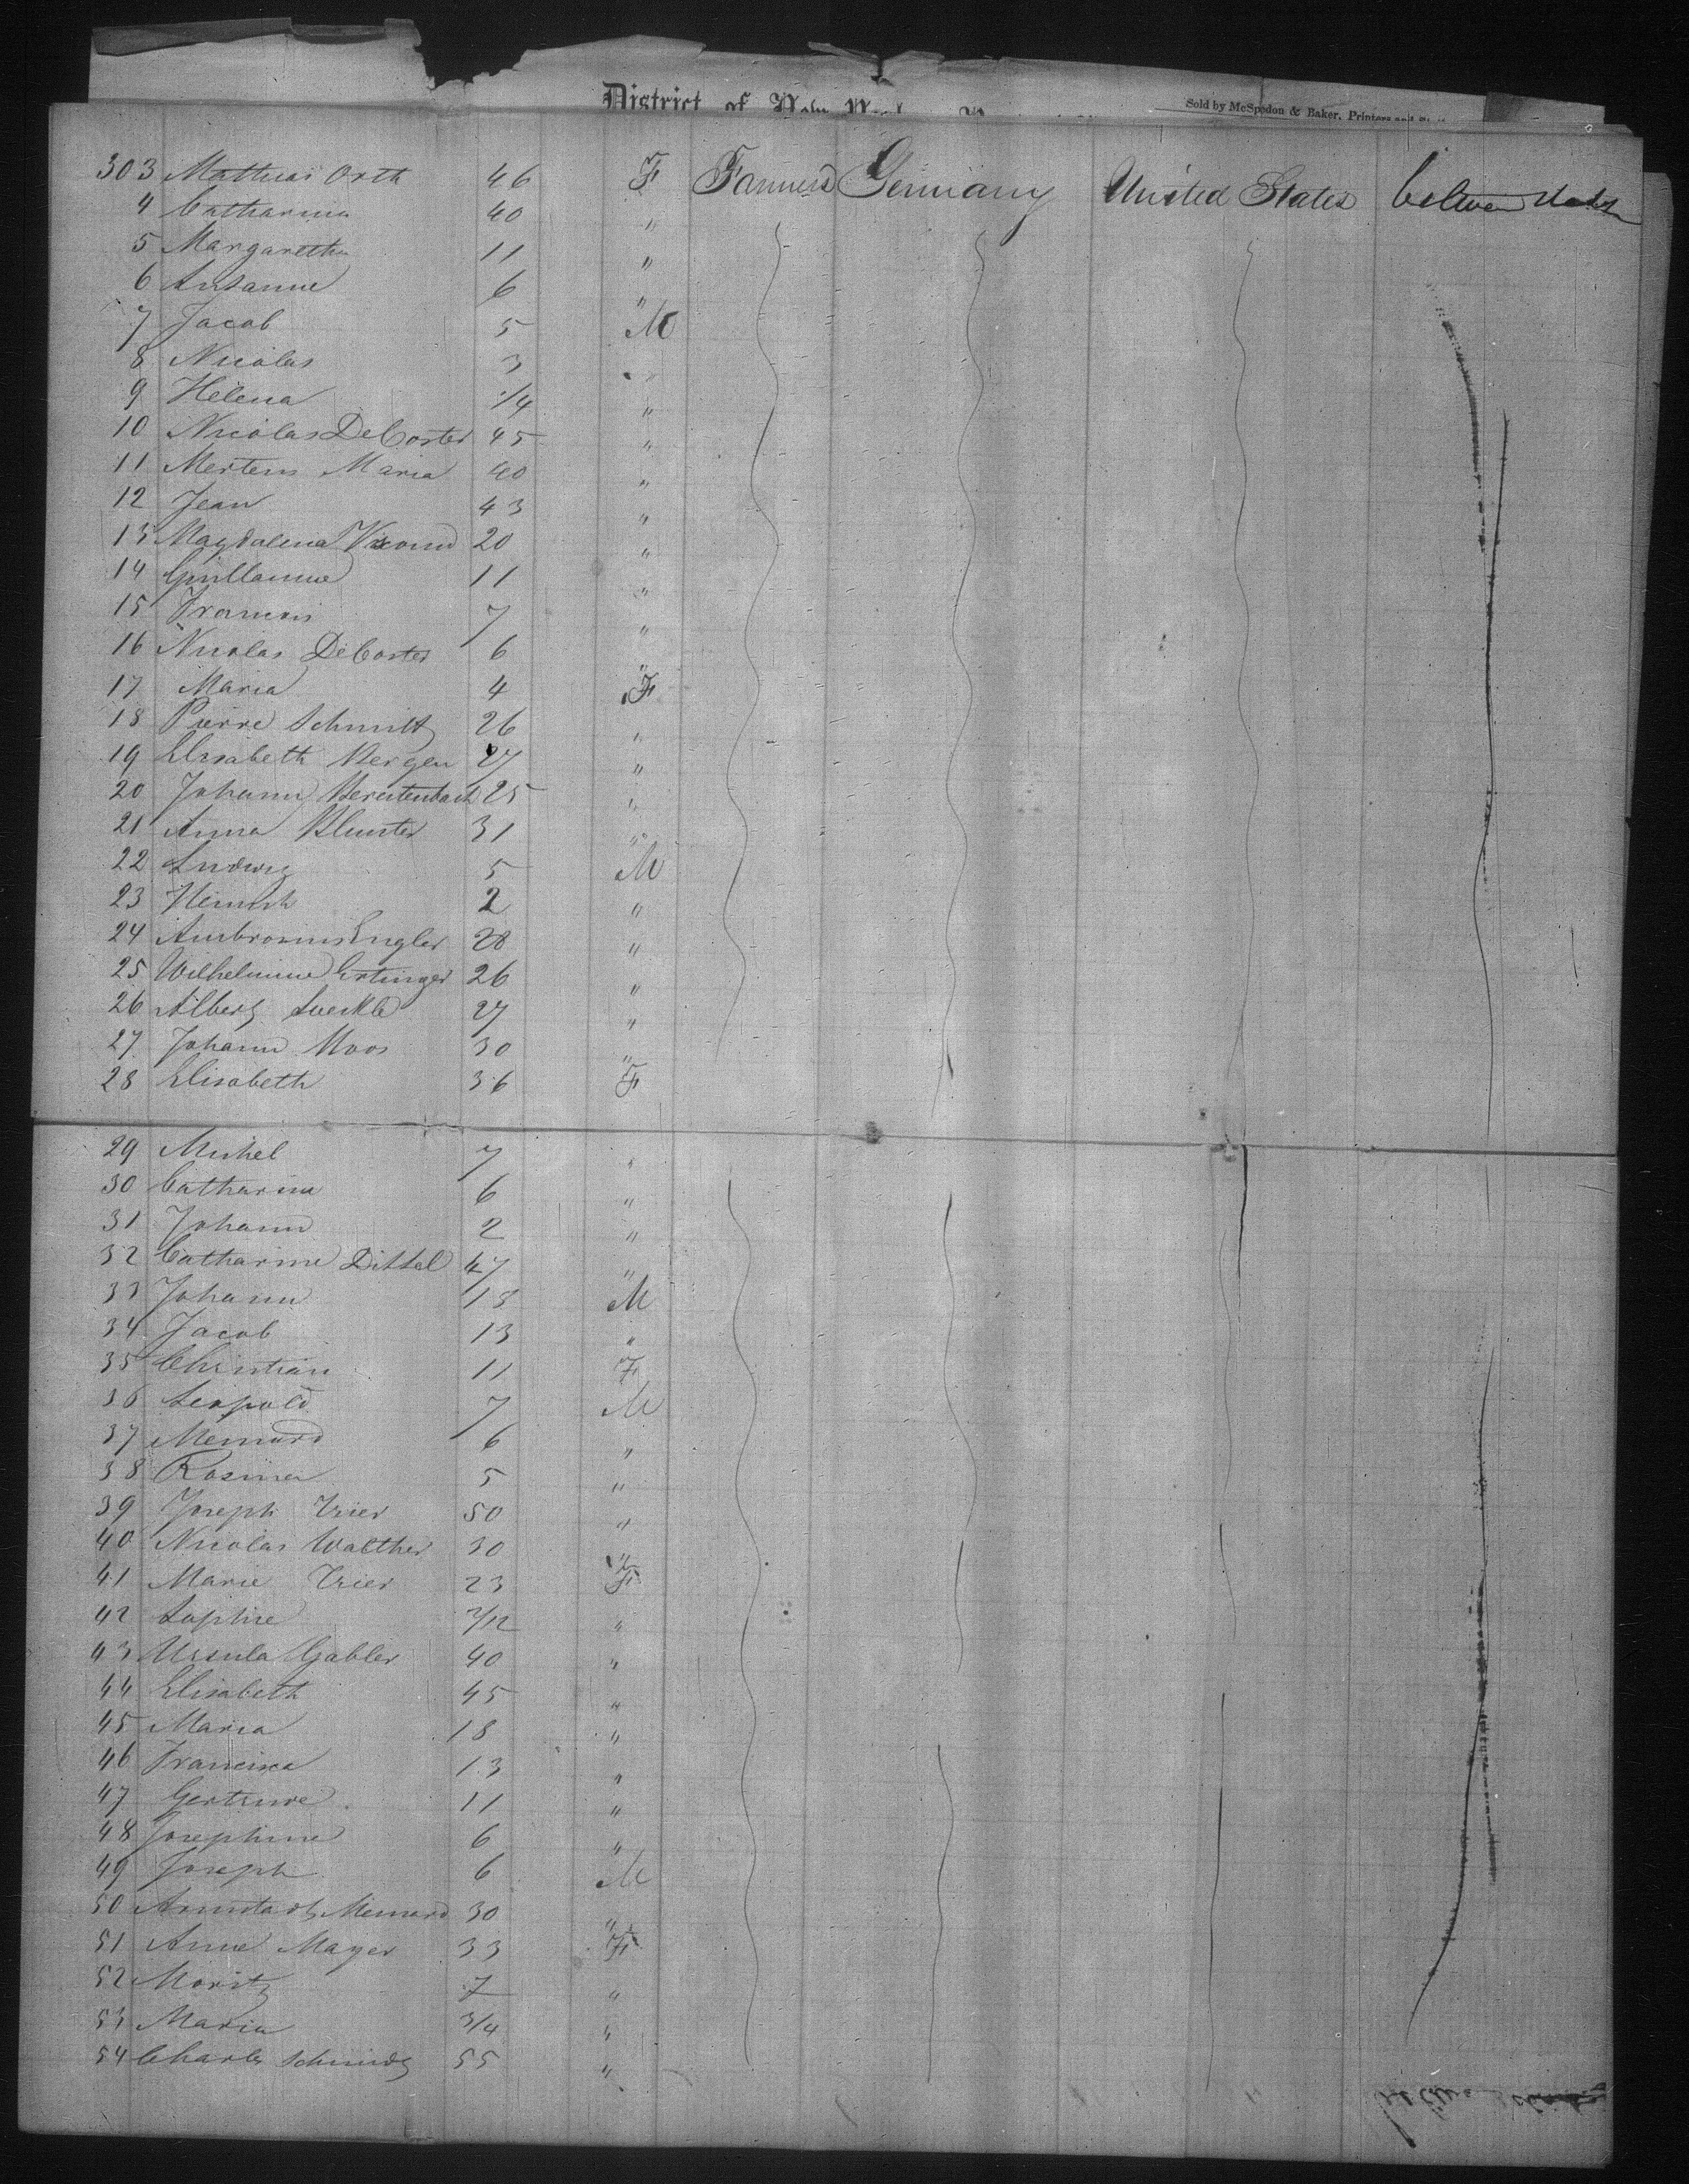 District of New York
Sold by McSpedon & Baker, Printers and
303 Mathias Orth 46 F Farmers Germany United States between decks
4 Catharina 40 "
5 Margaretha 11 "
6 Susanne 6 "
7 Jacob 5 M
8 Nicolas 3 "
9 Helena 1/4 "
10 Nicolas DeCoster 45 "
11 Mertens Maria 40 "
12 Jean 43 "
13 Magdalena 20 "
14 Guillaume 11 "
15 Francois 7 "
16 Nicolas DeCoster 6 "
17 Maria 4 F
18 Pierre Schmitt 26 "
19 Elisabeth Bergen 27 "
20 Johann Breitenbach 25 "
21 Anna 31 "
22 Ludwig 5 M
23 Heinrich 2 "
24 Ambrosius Engler 28 "
25 Wilhelmine Ertinger 26 "
26 Albert 27 "
27 Johann Moos 30 "
28 Elisabeth 36 F
29 Michel 7 "
30 Catharina 6 "
31 Johann 2 "
32 Catharine Dittel 47 "
33 Johann 18 M
34 Jacob 13 "
35 Christian 11 F
36 Leopold 7 M
37 Meinard 6 "
38 Rosina 5 "
39 Joseph Trier 50 "
40 Nicolas Walther 30 "
41 Marie Trier 23 F
42 Sophie /12 "
43 Ursula Gabler 40 "
44 Elisabeth 45 "
45 Maria 18 "
46 Francisca 13 "
47 Gertrude 11 "
48 Josephine 6 "
49 Joseph 6 M
50 Meinard 30 "
51 Anne Mayer 33 F
52 Moritz 7 "
53 Maria 3/4 "
54 Charles Schmidt 55 "